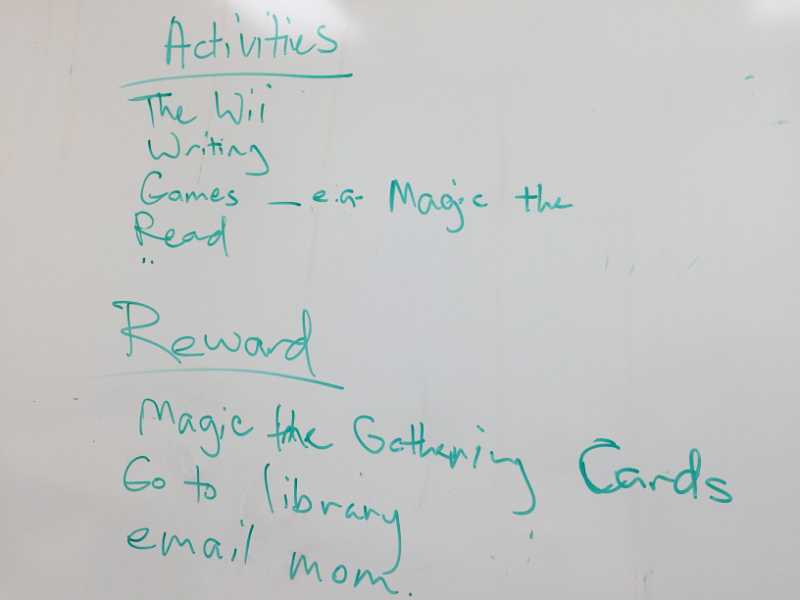 Activities
The Wii
Writing
Games _ e.g. Magic the
Read
..
Reward
Magic the Gathering Cards
Go to library
email mom.